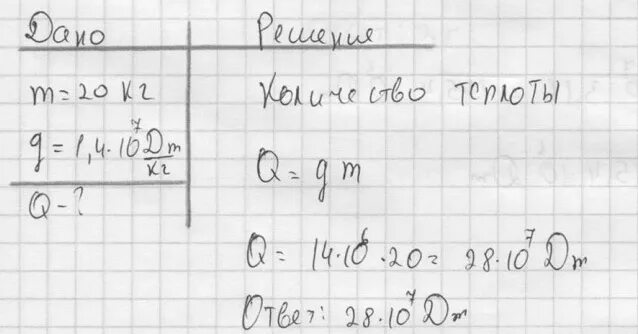 Дано
m = 20 кг
g = 1,4·10⁷ Dm/кг
Q - ?
Решение
Количество теплоты
Q = g m
Q = 14·10⁶ · 20 = 28·10⁷ Dm
Ответ: 28·10⁷ Dm